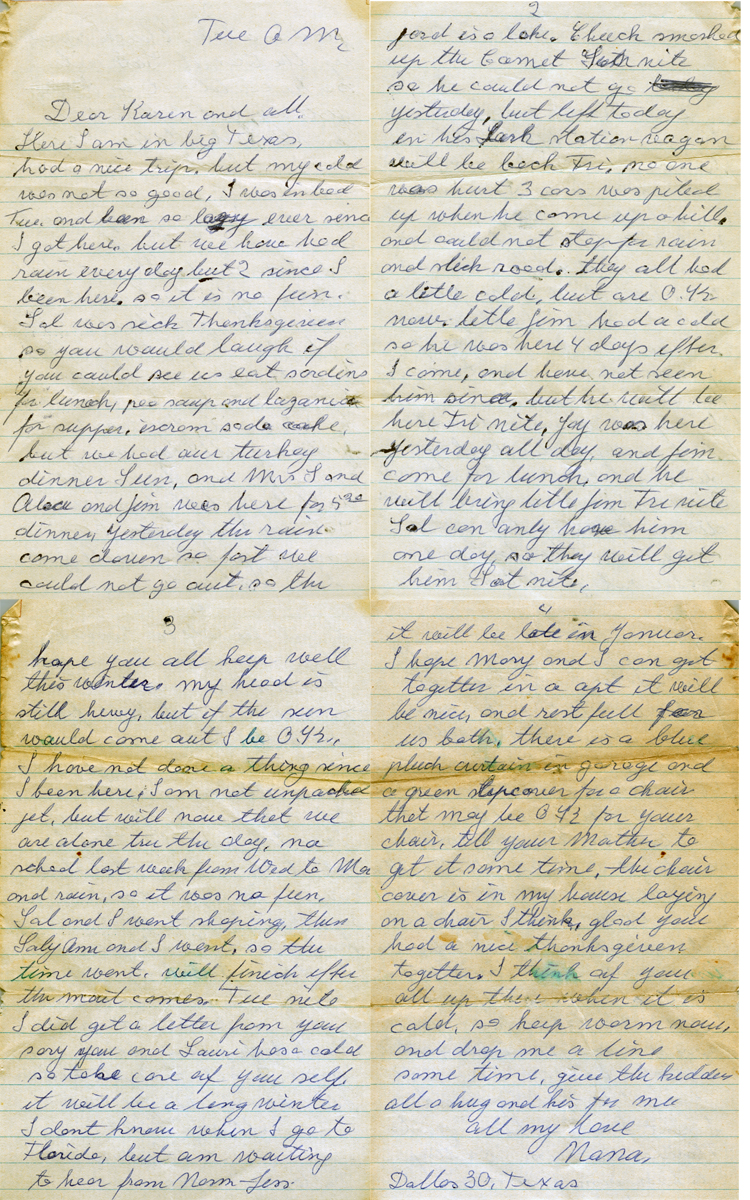 Tue A M,
Dear Karen and all.
Here I am in big Texas,
had a nice trip. but my cold
was not so good, I was in bed
Tue. and been so lazy ever sinc
I got here. but we have had
rain every day but 2 since I
been here. so it is no fun.
Sal was sick Thanksgiven
so you would laugh if
you could see us eat sardins
for lunch, pea soup and lazania
for supper. scram soda cake,
but we had our turkey
dinner Sun, and Mrs S and
and jim was here for 5:30
dinner, yesterday the rain
come down so fast we
could not go out. so the
2
yord is a lake. Chuck smashed
up the Comet Sat nite
so he could not go
yesterday, but left today
in his Lark station wagan
will be back Fri, no one
was hurt 3 cars was piled
up when he come up a hill.
and could not stop for rain
and slick road. they all had
a little cold, but are O.K
now. letle jim had a cold
so he was here 4 days efter.
I come, and have not seen
him since, but he will be
here Fri nite, Jay was here
yesterday all day, and jim
come for lunch, and he
will bring letle jim Fri nite
Sal can only have him
one day, so they will get
him Sat nite.
3
hope you all keep well
this winter. my head is
still hevy, but if the sun
would come out I be O.K.,
I have not done a thing since
I been here, I am not unpacked
jet, but will now that we
are alone tru the day, no
school last week from Wed to Mo
and rain, so it was no fun.
Sal and I went shoping, then
Saly Ann and I went, so the
time went. will finich efter
the mail comes. Tue nite
I did get a letter from you
sory you and Lauri has a cold
so take care of you self.
it will be a long winter
I dont know when I go to
Florida, but am waiting
to hear from Norm-Jess.
4
it will be late in Januar.
I hope Mary and I can get
together in a apt it will
be nice, and restfull for
us both, there is a blue
plush curtain in garage and
a green slipcover for a chair
that may be O K for your
chair, tell your Mother to
get it some time, the chair
cover is in my house laying
on a chair I think, glad you
had a nice thanksgiven
together. I think of you
all up there when it is
cold, so keep warm now,
and drop me a line
some time, give the kiddes
all a hug and kis for me
all my love
Nana,
Dallas 30, Texas